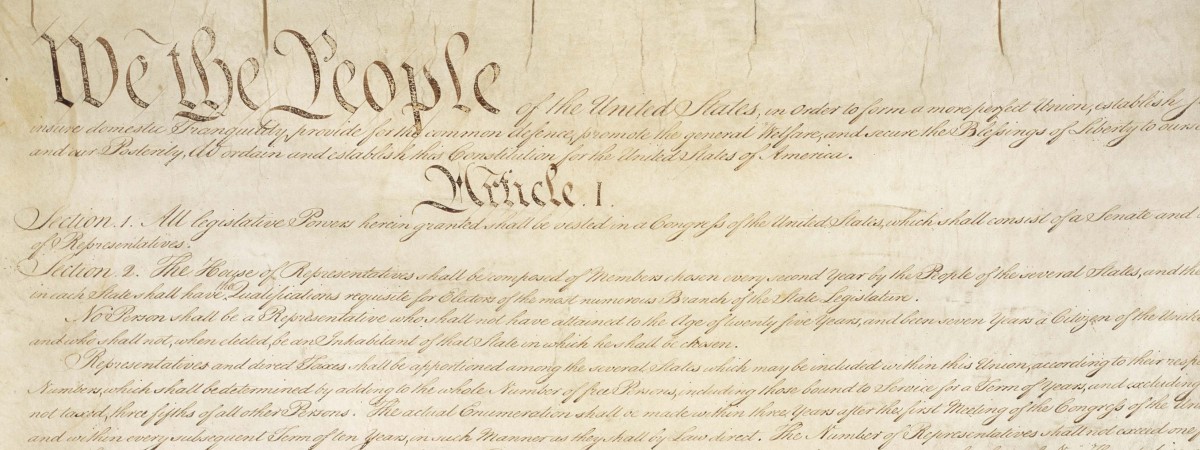 We the People of the United States, in Order to form a more perfect Union, establish
insure domestic Tranquility, provide for the common defence, promote the general Welfare, and secure the Blessings of Liberty to
and our Posterity, do ordain and establish this Constitution for the United States of America.
Article. I.
Section. 1. All legislative Powers herein granted shall be vested in a Congress of the United States, which shall consist of a Senate and
of Representatives.
Section. 2. The House of Representatives shall be composed of Members chosen every second Year by the People of the several States, and the
in each State shall have the Qualifications requisite for Electors of the most numerous Branch of the State Legislature.
No Person shall be a Representative who shall not have attained to the Age of twenty five Years, and been seven Years a Citizen of the United
and who shall not, when elected, be an Inhabitant of that State in which he shall be chosen.
Representatives and direct Taxes shall be apportioned among the several States which may be included within this Union, according to their
Numbers, which shall be determined by adding to the whole Number of free Persons, including those bound to Service for a Term of Years, and excluding
not taxed, three fifths of all other Persons. The actual Enumeration shall be made within three Years after the first Meeting of the Congress of the
and within every subsequent Term of ten Years, in such Manner as they shall by Law direct. The Number of Representatives shall not exceed one